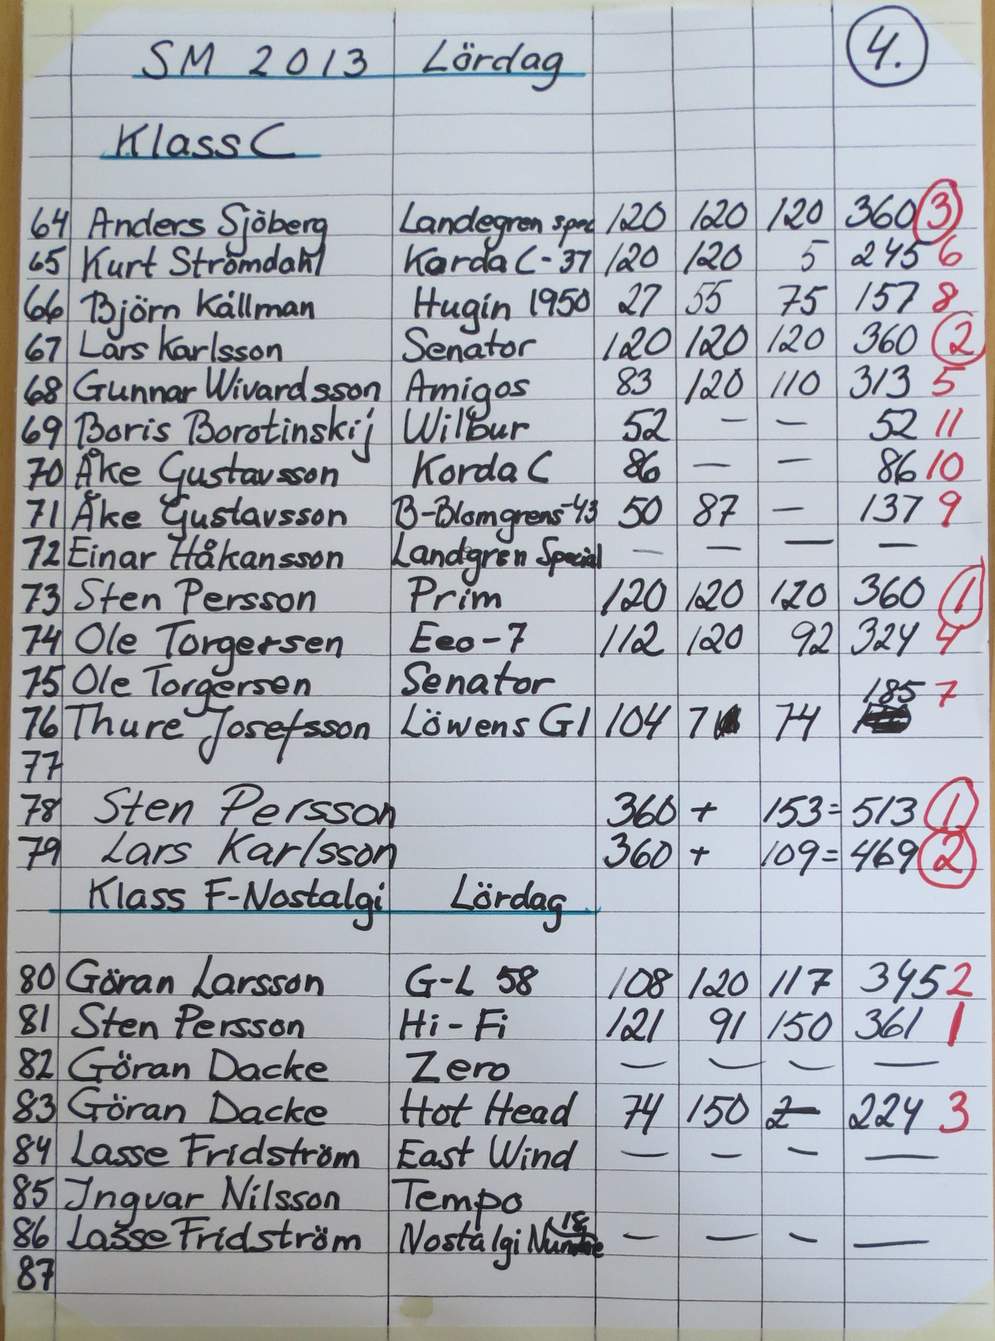 4.
SM 2013 Lördag
Klass C
64 Anders Sjöberg Landegren spec 120 120 120 360 3
65 Kurt Strömdahl Karda C-37 120 120 5 245 6
66 Björn Källman Hugin 1950 27 55 75 157 8
67 Lars Karlsson Senator 120 120 120 360 2
68 Gunnar Wivardsson Amigos 83 120 110 313 5
69 Boris Borotinskij Wilbur 52 – – 52 11
70 Åke Gustavsson Korda C 86 – – 86 10
71 Åke Gustavsson B-Blomgrens-43 50 87 – 137 9
72 Einar Håkansson Landgren Special – – – –
73 Sten Persson Prim 120 120 120 360 1
74 Ole Torgersen Eeo-7 112 120 92 324 4
75 Ole Torgersen Senator
76 Thure Josefsson Löwens G1 104 7 74 185 7
77
78 Sten Persson 360 + 153 = 513 1
79 Lars Karlsson 360 + 109 = 469 2
Klass F-Nostalgi Lördag
80 Göran Larsson G-L 58 108 120 117 345 2
81 Sten Persson Hi-Fi 121 91 150 361 1
82 Göran Dacke Zero – – – –
83 Göran Dacke Hot Head 74 150 – 224 3
84 Lasse Fridström East Wind – – – –
85 Ingvar Nilsson Tempo
86 Lasse Fridström Nostalgi 18 – – – –
87